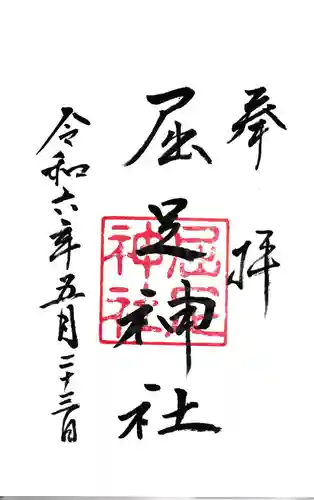 奉拝
屈足神社
屈足
神社
令和六年五月二十三日